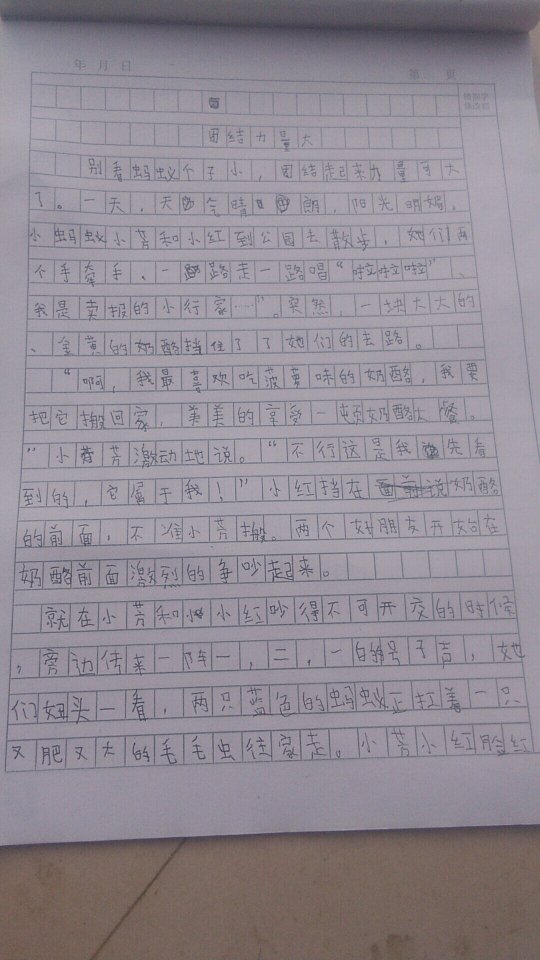 年 月 日 第 页
团结力量大
别看蚂蚁个子小，团结起来力量可大
了。一天，天气晴朗，阳光明媚。
小蚂蚁小芳和小红到公园去散步，她们两
个手牵手、一路走一路唱“啦啦啦”、
我是卖报的小行家……”。突然，一块大大的
、金黄的奶酪挡住了了她们的去路。
“啊，我最喜欢吃菠萝味的奶酪，我要
把它搬回家，美美的享受一顿奶酪大餐。
”小芳激动地说。“不行这是我先看
到的，它属于我！”小红挡在奶酪
的前面，不准小芳搬。两个好朋友开始在
奶酪前面激烈的争吵起来。
就在小芳和小红吵得不可开交的时候
，旁边传来一阵一，二，一的号子声，她
们扭头一看，两只蓝色的蚂蚁正扛着一只
又肥又大的毛毛虫往家走。小芳小红脸红